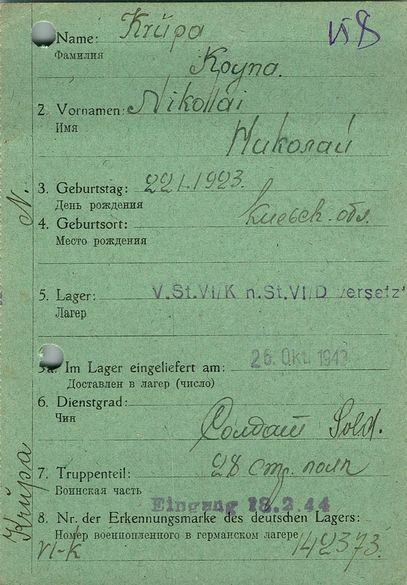 Name: Krüpa
VI 8
Фамилия
Kpyna.
2. Vornamen: Nikollai
Имя
Николай
3. Geburtstag: 22.1.1923.
День рождения
4. Geburtsort: Киевск. обл.
Место рождения
5. Lager: V.St.VI/K n.St.VI/D versetzt
Лагер
5a. Im Lager eingeliefert am: 26. Okt. 1943
Доставлен в лагер (число)
6. Dienstgrad:
Чин
Солдат Sold.
7. Truppenteil: 28 стр. полк
Воинская часть
Eingang 18.2.44
8. Nr. der Erkennungsmarke des deutschen Lagers:
Номер военнопленного в германском лагере
VI-K 142373.
Krüpa N.